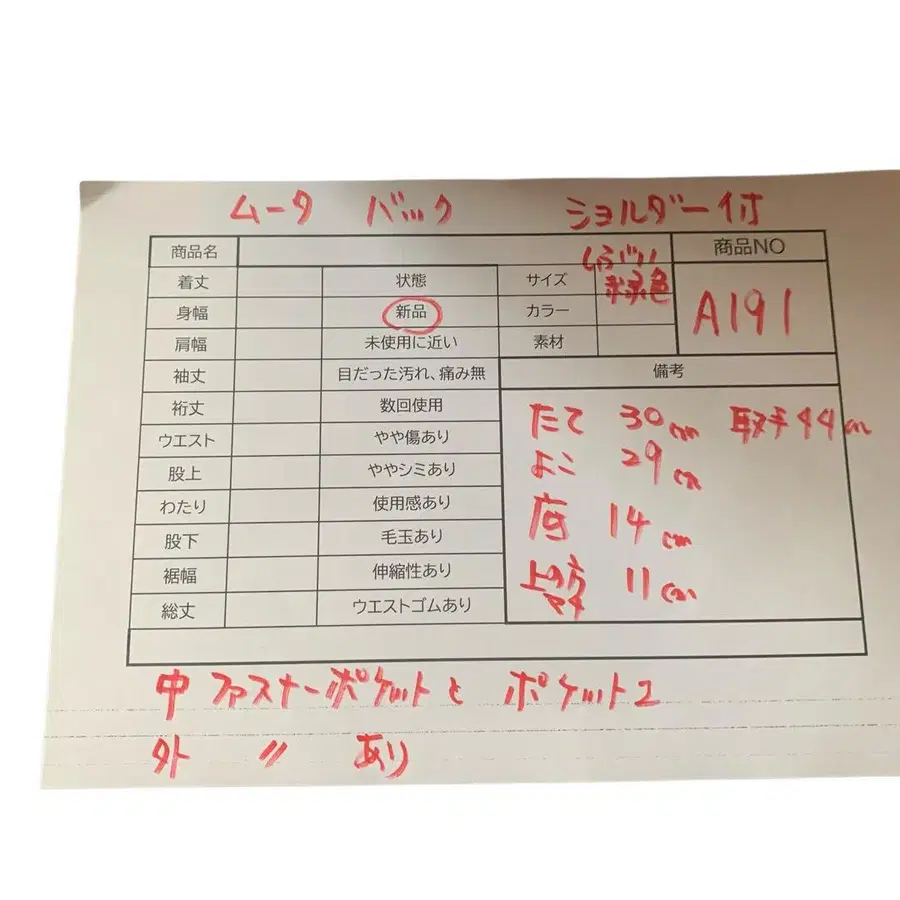 ムータ バック ショルダー付
商品名 商品NO
着丈 状態 サイズ
A191
身幅 新品 カラー
肩幅 未使用に近い 素材
袖丈 目だった汚れ、痛み無 備考
裄丈 数回使用
たて 30cm 取手44cm
ウエスト やや傷あり
よこ 29cm
股上 ややシミあり
わたり 使用感あり
底 14cm
股下 毛玉あり
裾幅 伸縮性あり
上の方 11cm
総丈 ウエストゴムあり
中 ファスナーポケットと ポケット2
外 〃 あり